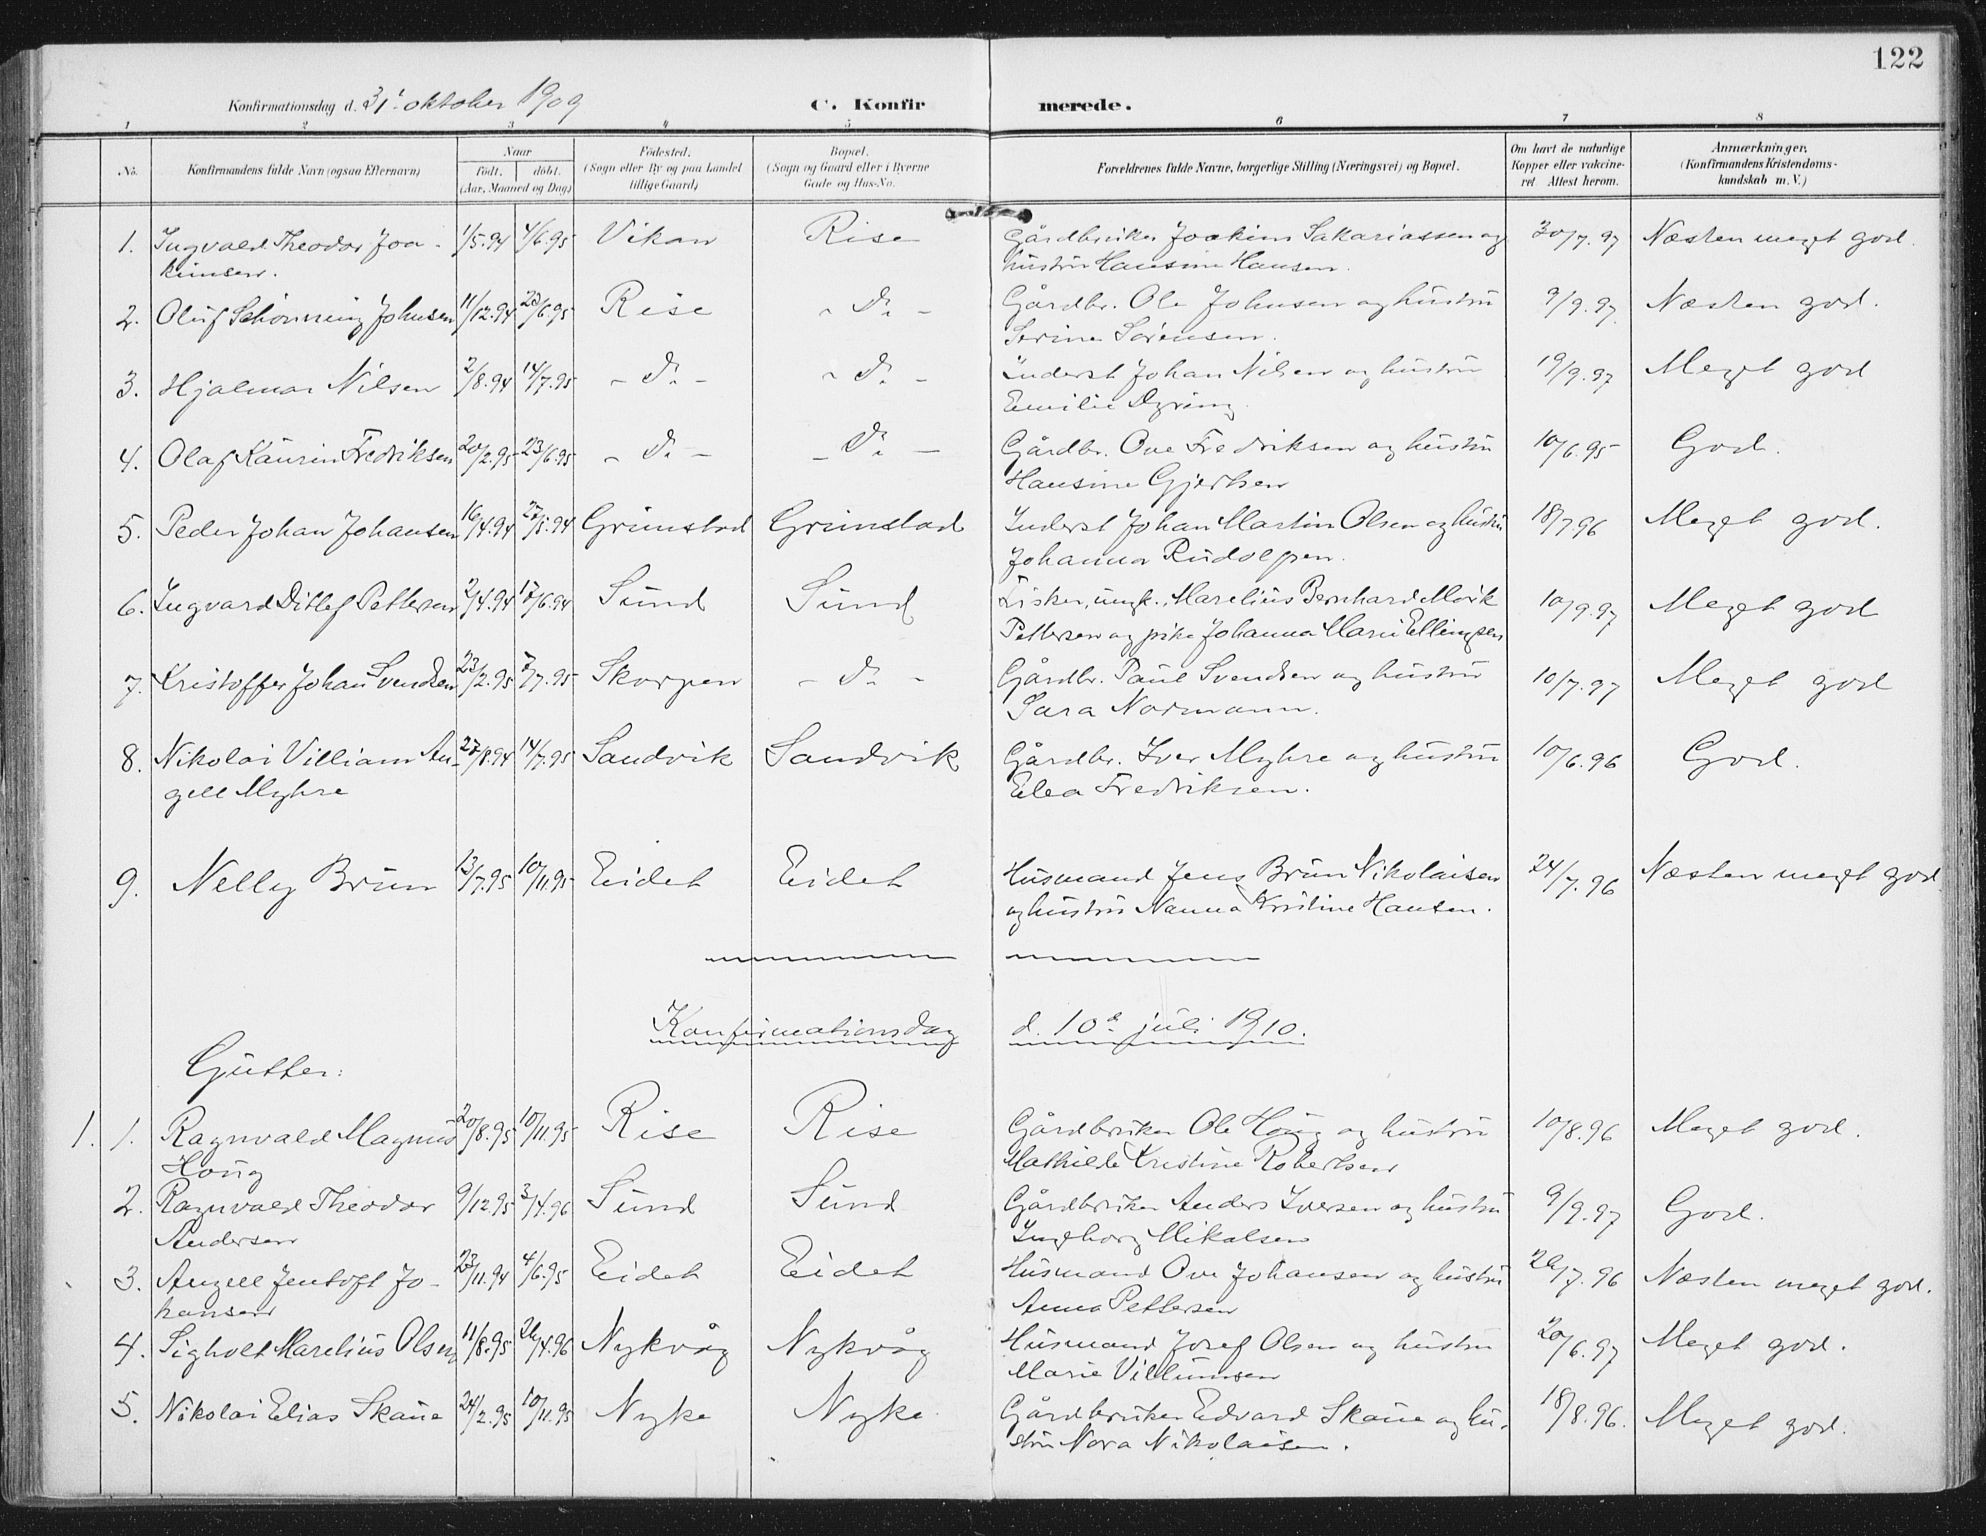 122
Konfirmationsdag d. 31' oktober 1909
C. Konfirmerede.
1 2 3 4 5 6 7 8
No. Konfirmandens fulde Navn (ogsaa Efternavn) Naar født. døbt. (Aar, Maaned og Dag) Fødested. (Sogn eller By og paa Landet tillige Gaard) Bopæl. (Sogn og Gaard eller i Byerne Gade og Hus-No. Forældrenes fulde Navne, borgerlige Stilling (Næringsvei) og Bopæl. Om havt de naturlige Kopper eller vakcineret. Attest herom. Anmærkninger. (Konfirmandens Kristendomskundskab m. V.)
1. Ingvald Theodor Joa- 1/5.94 4/6.95 Vikan Rise Gårdbruker Joakim Sakariassen og 30/7.97 Næsten meget god.
kimsen. hustru Hansine Hansen.
2. Oluf Schønning Johnsen 11/12.94 23/6.95 Rise - do - Gårdbr. Ole Johnsen og hustru 9/9.97. Næsten god.
Serine Sørensen.
3. Hjalmar Nilsen 2/8.94 14/7.95 - do - - do - Inderst Johan Nilsen og hustru 19/9.97 Meget god
Emilie Dyring
4. Olaf Kaurin Fredriksen 20/2.95 23/6.95 - do - - do - Gårdbr. Ove Fredriksen og hustru 10/6.95 God.
Hansine Gjertsen
5. Peder Johan Johansen 16/4.94 27/5.94 Grimstad Grimstad Inderst Johan Martin Olsen og hustru 18/7.96 Meget god.
Johanna Rudolfsen.
6. Ingvard Ditlef Pettersen 2/4.94 17/6.94 Sund Sund Fisker, ungk. Marelius Bernhard Mørk 10/9.97 Meget god
Pettersen og pike Johanna Marie Ellingsen
7. Kristoffer Johan Svendsen 23/2.95 7/7.95 Skorpen - do - Gårdbr. Paul Svendsen og hustru 10/7.97 Meget god
Sara Normann.
8. Nikolai Villiam An- 27/8.94 14/7.95 Sandvik Sandvik Gårdbr. Iver Myhre og hustru 10/6.96 God.
gell Myhre Elea Fredriksen.
9. Nelly Brun 13/7.95 10/11.95 Eidet Eidet Husmand Jens Brun Nikolaisen 24/7.96 Næsten meget god
og hustru Nanna Kristine Hansen.
Konfirmationsdag d. 10de juli 1910.
Gutter:
1. 1. Ragnvald Magnus 20/8.95 10/11.95 Rise Rise Gårdbruker Ole Houg og hustru 10/8.96 Meget god.
Houg Mathilde Kristine Robertsen
2. Ragnvald Theodor 9/12.95 3/4.96 Sund Sund Gårdbruker Anders Iversen og hustru 9/9.97 God.
Andersen Ingeborg Mikalsen
3. Angell Jentoft Jo- 23/11.94 4/6.95 Eidet Eidet Husmand Ove Johansen og hustru 26/7.96 Næsten meget god.
hansen Anna Pettersen
4. Sigholt Marelius Olsen 11/8.95 26/4.96 Nykvåg Nykvåg Husmand Josef Olsen og hustru 20/6.97 Meget god.
Marie Villumsen
5. Nikolai Elias Skaue 24/2.95 10/11.95 Nyke Nyke Gårdbruker Edvard Skaue og hu- 18/8.96. Meget god.
stru Nora Nikolaisen.